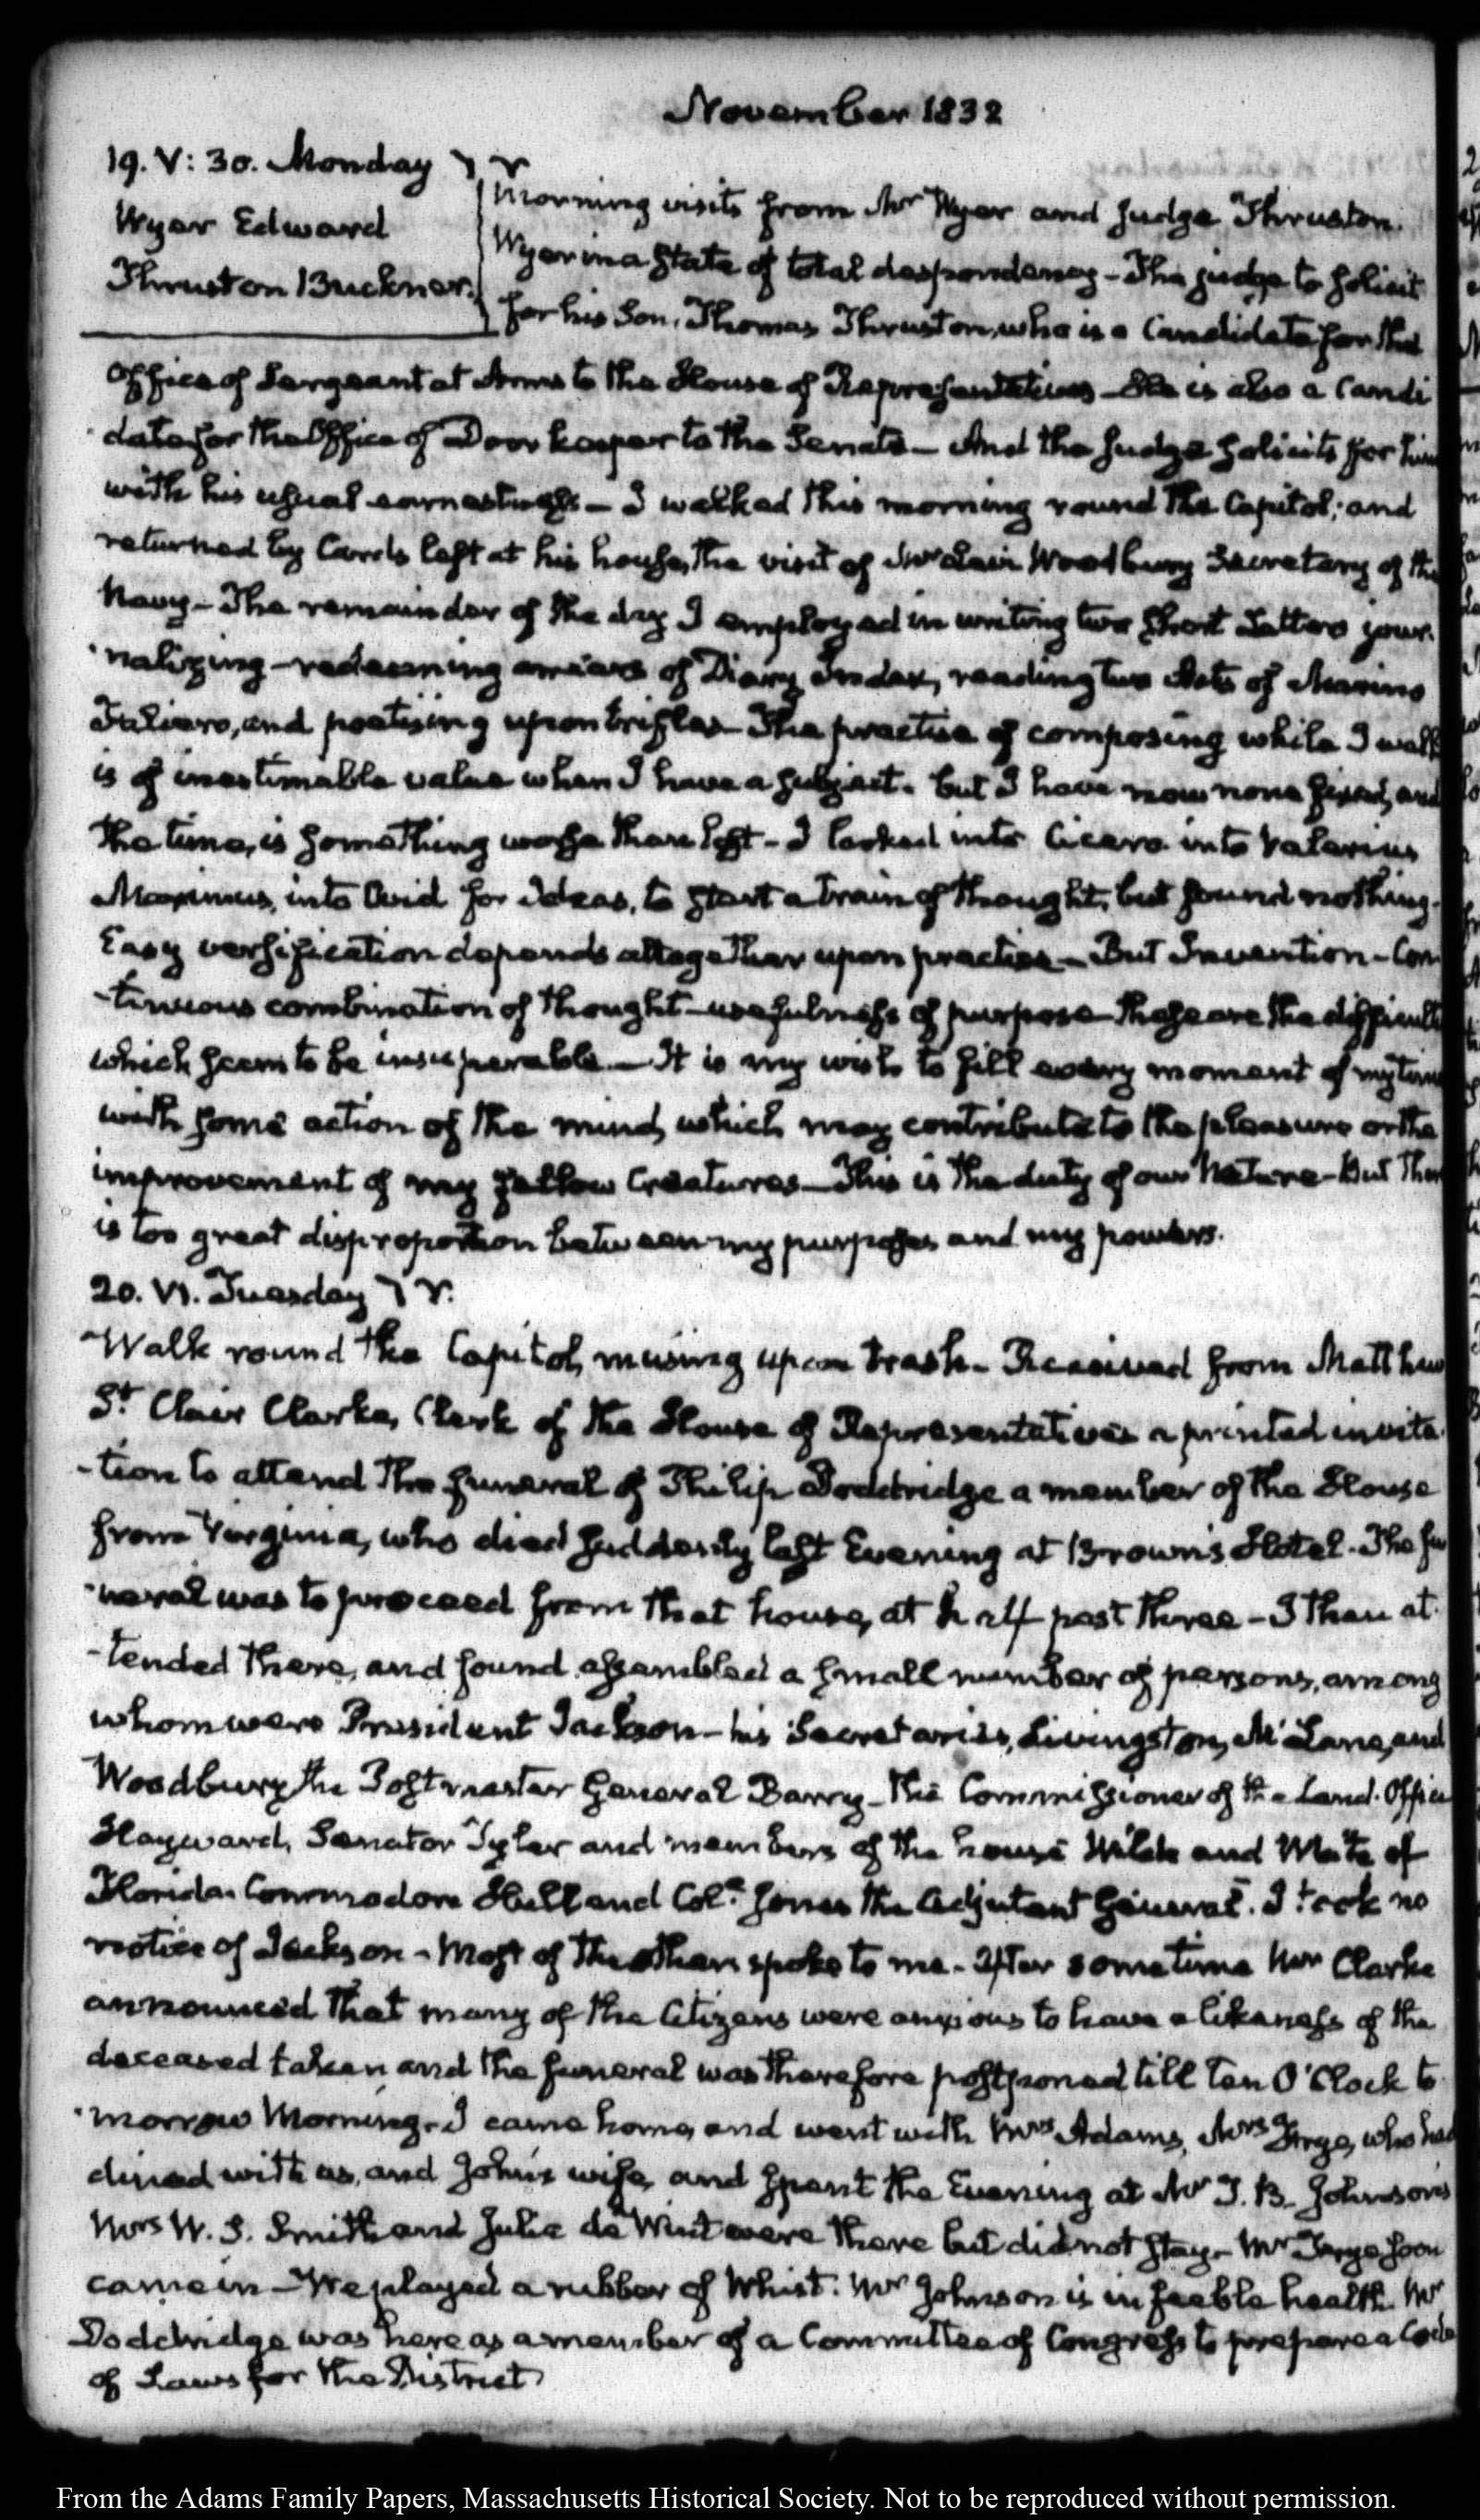 November 1832
19. V: 30. Monday
Wyer Edward
Thruston Buckner.
Morning visits from Mr Wyer and Judge Thruston.
Wyer in a state of total despondency – The judge to solicit
for his Son, Thomas Thruston, who is a Candidate for the
Office of Sergeant at Arms to the House of Representatives – He is also a Candi
date for the Office of Door keeper to the Senate – And the Judge solicits for him
with his usual earnestness – I walked this morning round the Capitol; and
returned by Cards left at his house, the visit of Mr Levi Woodbury Secretary of the
Navy – The remainder of the day I employed in writing two short Letters jour-
nalizing – redeeming arrears of Diary Index, reading two Acts of Marino
Faliero, and poetising upon trifles – The practice of composing while I walk
is of inestimable value when I have a subject. but I have now none fixed, and
the time, is something worse than lost – I looked into Cicero into Valerius
Maximus, into Ovid for Ideas, to start a train of thought, but found nothing.
Easy versification depends altogether upon practice – But Invention – Con-
-tinuous combination of thought – usefulness of purpose – these are the difficulties
which seem to be insuperable – It is my wish to fill every moment of my time
with some action of the mind, which may contribute to the pleasure or the
improvement of my fellow Creatures – This is the duty of our Nature – But there
is too great disproportion between my purposes and my powers.
20. VI. Tuesday
Walk round the Capitol, musing upon trash – Received from Matthew
St. Clair Clarke, Clerk of the House of Representatives a printed invita-
-tion to attend the funeral of Philip Doddridge a member of the House
from Virginia, who died suddenly last Evening at Brown's Hotel. The fu
-neral was to proceed from that house, at half past three – I then at-
-tended there, and found assembled a small number of persons, among
whom were President Jackson – his Secretaries, Livingston, McLane, and
Woodbury the Postmaster General Barry – the Commissioner of the Land-Office
Hayward, Senator Tyler and members of the house Wilde and White of
Florida. Commodore Hull and Col. Jones the Adjutant General. I took no
notice of Jackson – Most of the others spoke to me – After some time Mr Clarke
announced that many of the Citizens were anxious to have a likeness of the
deceased taken and the funeral was therefore postponed till ten O'Clock to-
-morrow Morning. I came home, and went with Mrs Adams, Mrs Frye, who had
dined with us, and John's wife, and spent the Evening at Mr T. B. Johnson's
Mrs W. S. Smith and Julia de Wint were there but did not stay – Mr Frye soon
came in – We played a rubber of Whist. Mr Johnson is in feeble health. Mr
Doddridge was here as a member of a Committee of Congress to prepare a Code
of Laws for the District
From the Adams Family Papers, Massachusetts Historical Society. Not to be reproduced without permission.